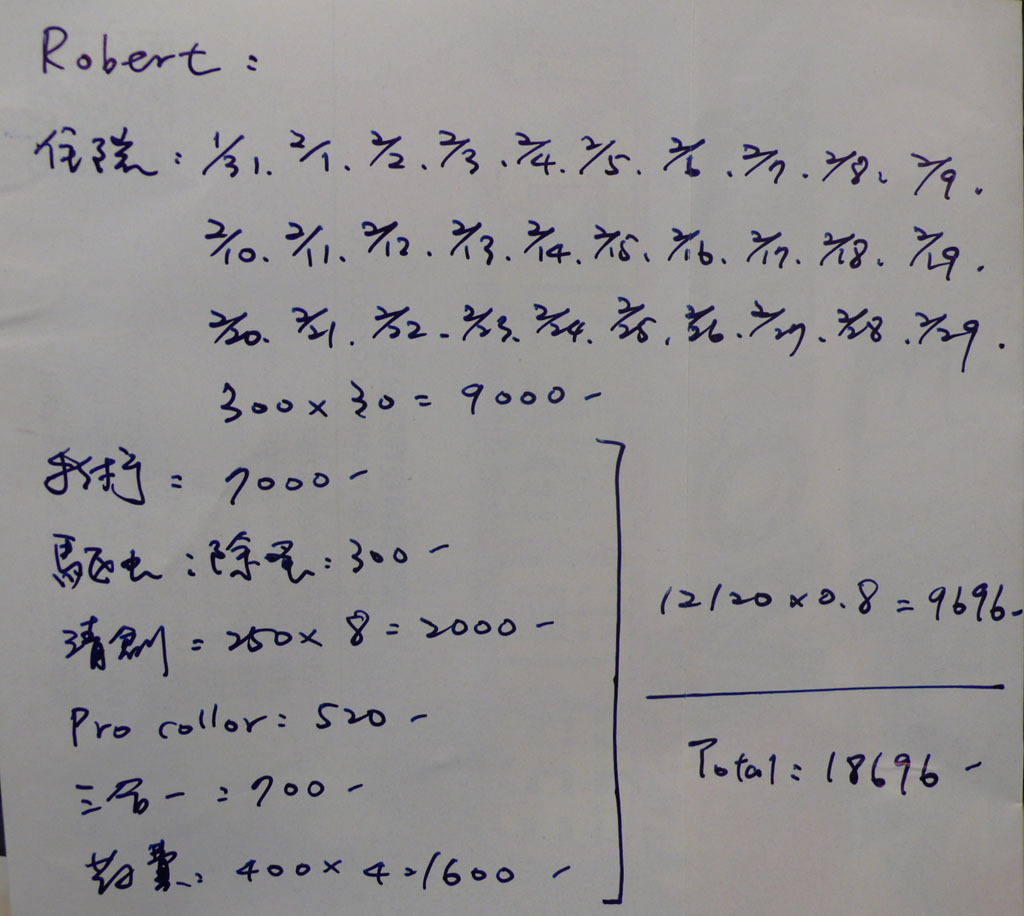 Robert :
住院 : 1/31. 2/1. 2/2. 2/3. 2/4. 2/5. 2/6. 2/7. 2/8. 2/9.
2/10. 2/11. 2/12. 2/13. 2/14. 2/15. 2/16. 2/17. 2/18. 2/19.
2/20. 2/21. 2/22. 2/23. 2/24. 2/25. 2/26. 2/27. 2/28. 2/29.
300 × 30 = 9000 -
手術 : 7000 -
驅虫 : 除蚤 : 300 -
清創 = 250 × 8 = 2000 -
12120 × 0.8 = 9696 -
Pro collor : 520 -
Total : 18696 -
三合一 : 700 -
藥費 : 400 × 4 = 1600 -